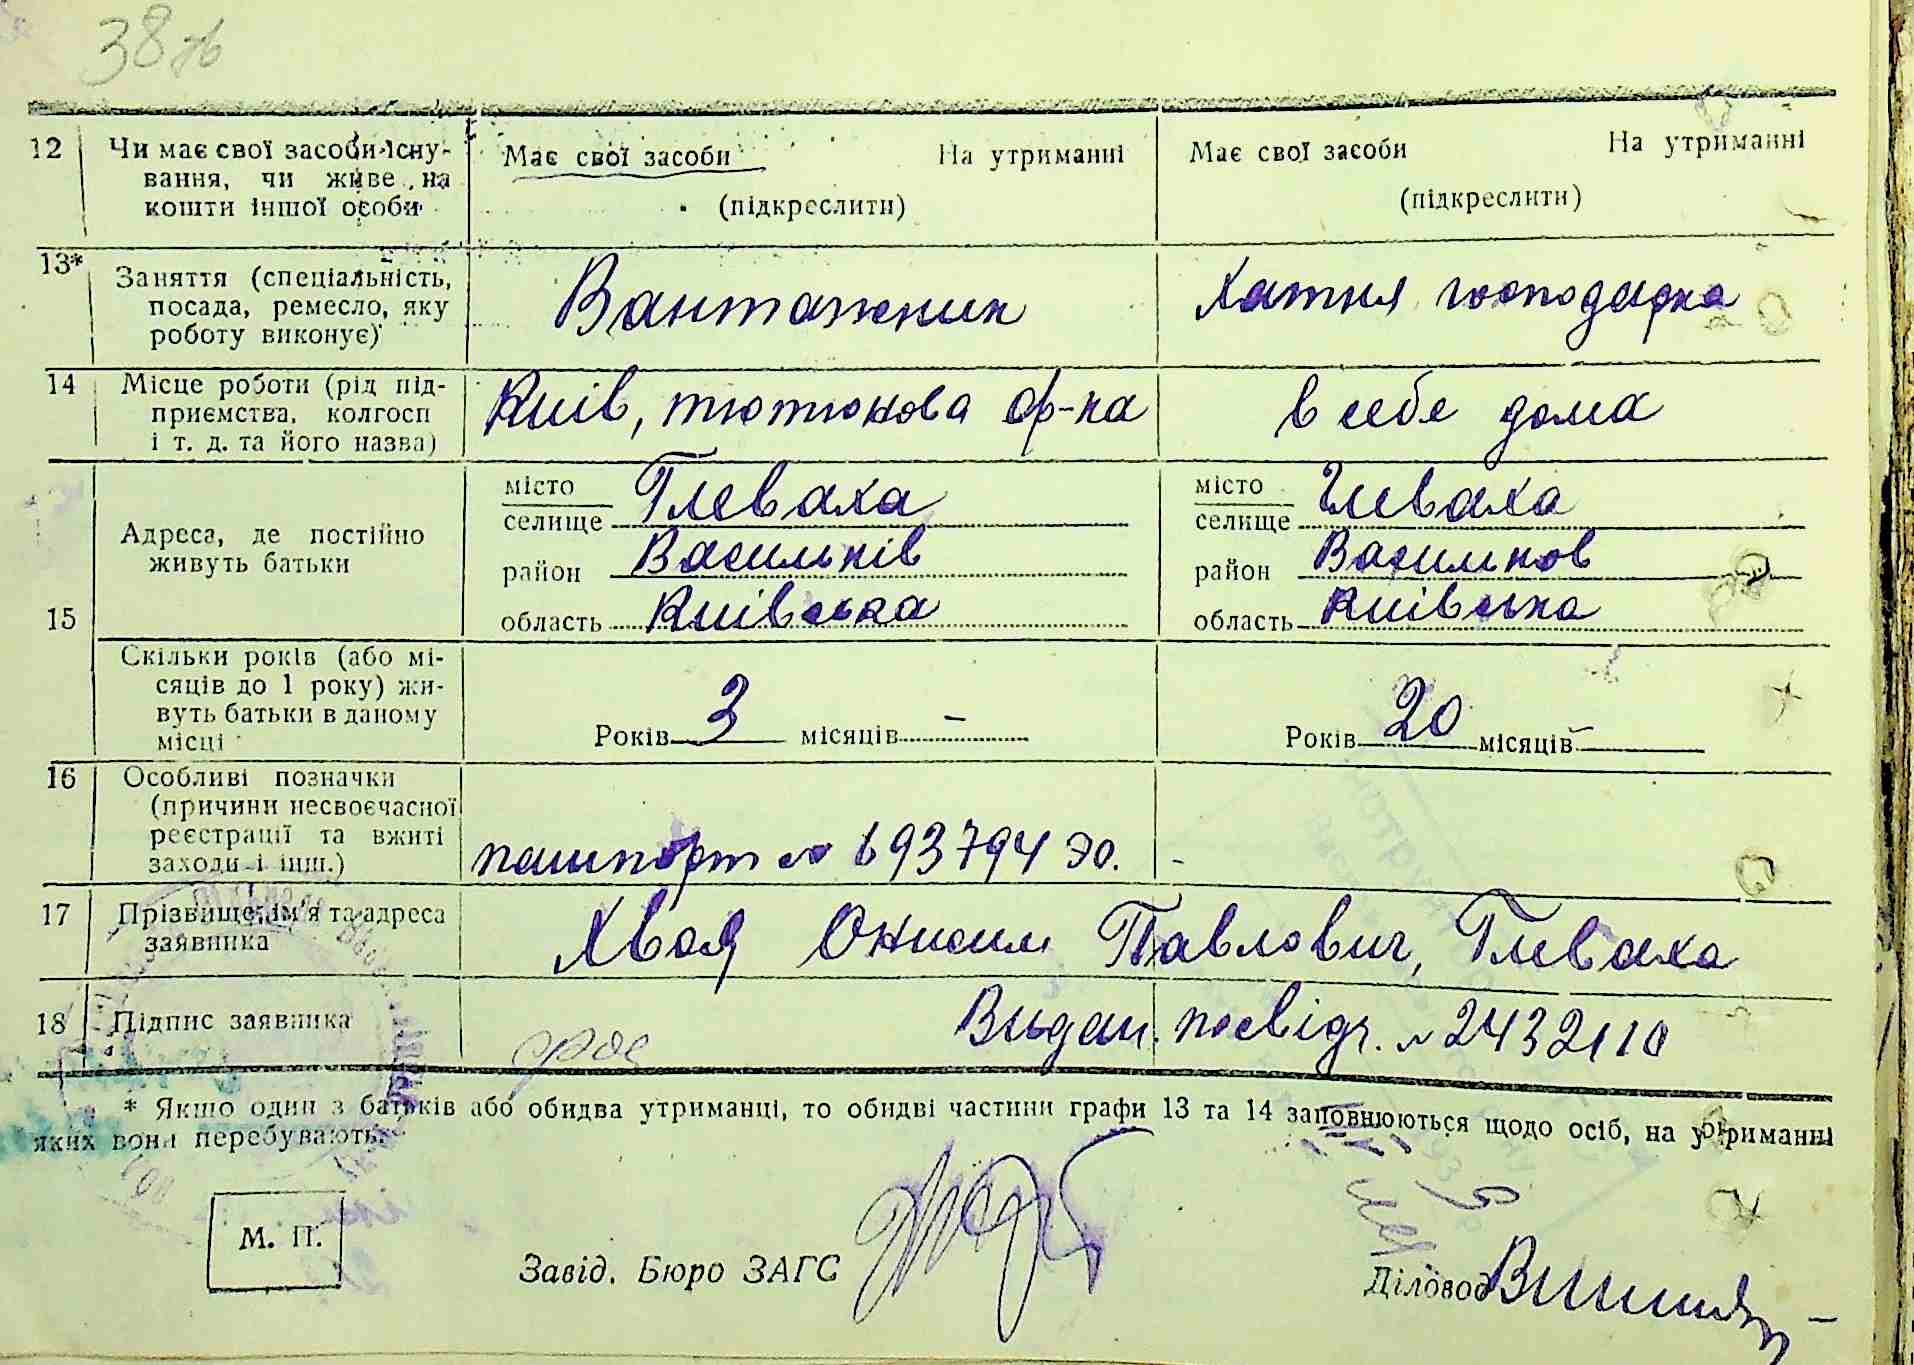 38 зв
12 Чи має свої засоби існу- Має свої засоби На утриманні Має свої засоби На утриманні
вання, чи живе на
кошти іншої особи (підкреслити) (підкреслити)
13* Заняття (спеціальність,
посада, ремесло, яку Вантажник Хатня господарка
роботу виконує)
14 Місце роботи (рід під-
приємства, колгосп Київ, тютюнова ф-ка в себе дома
і т. д. та його назва)
15 Адреса, де постійно
живуть батьки
місто Глеваха місто Глеваха
селище селище
район Васильків район Васильков
область Київська область Київська
Скільки років (або мі-
сяців до 1 року) жи-
вуть батьки в даному
місці Років 3 місяців – Років 20 місяців –
16 Особливі позначки
(причини несвоєчасної
реєстрації та вжиті
заходи і інш.) пашпорт № 693794 ЭО. -
17 Прізвище, ім'я та адреса
заявника Хвоя Онисим Павлович, Глеваха
18 Підпис заявника Видан. посвідч. № 2432110
* Якшо один з батьків або обидва утриманці, то обидві частини графи 13 та 14 заповнюються щодо осіб, на утриманні
яких вони перебувають.
М. П.
Завід. Бюро ЗАГС
Діловод